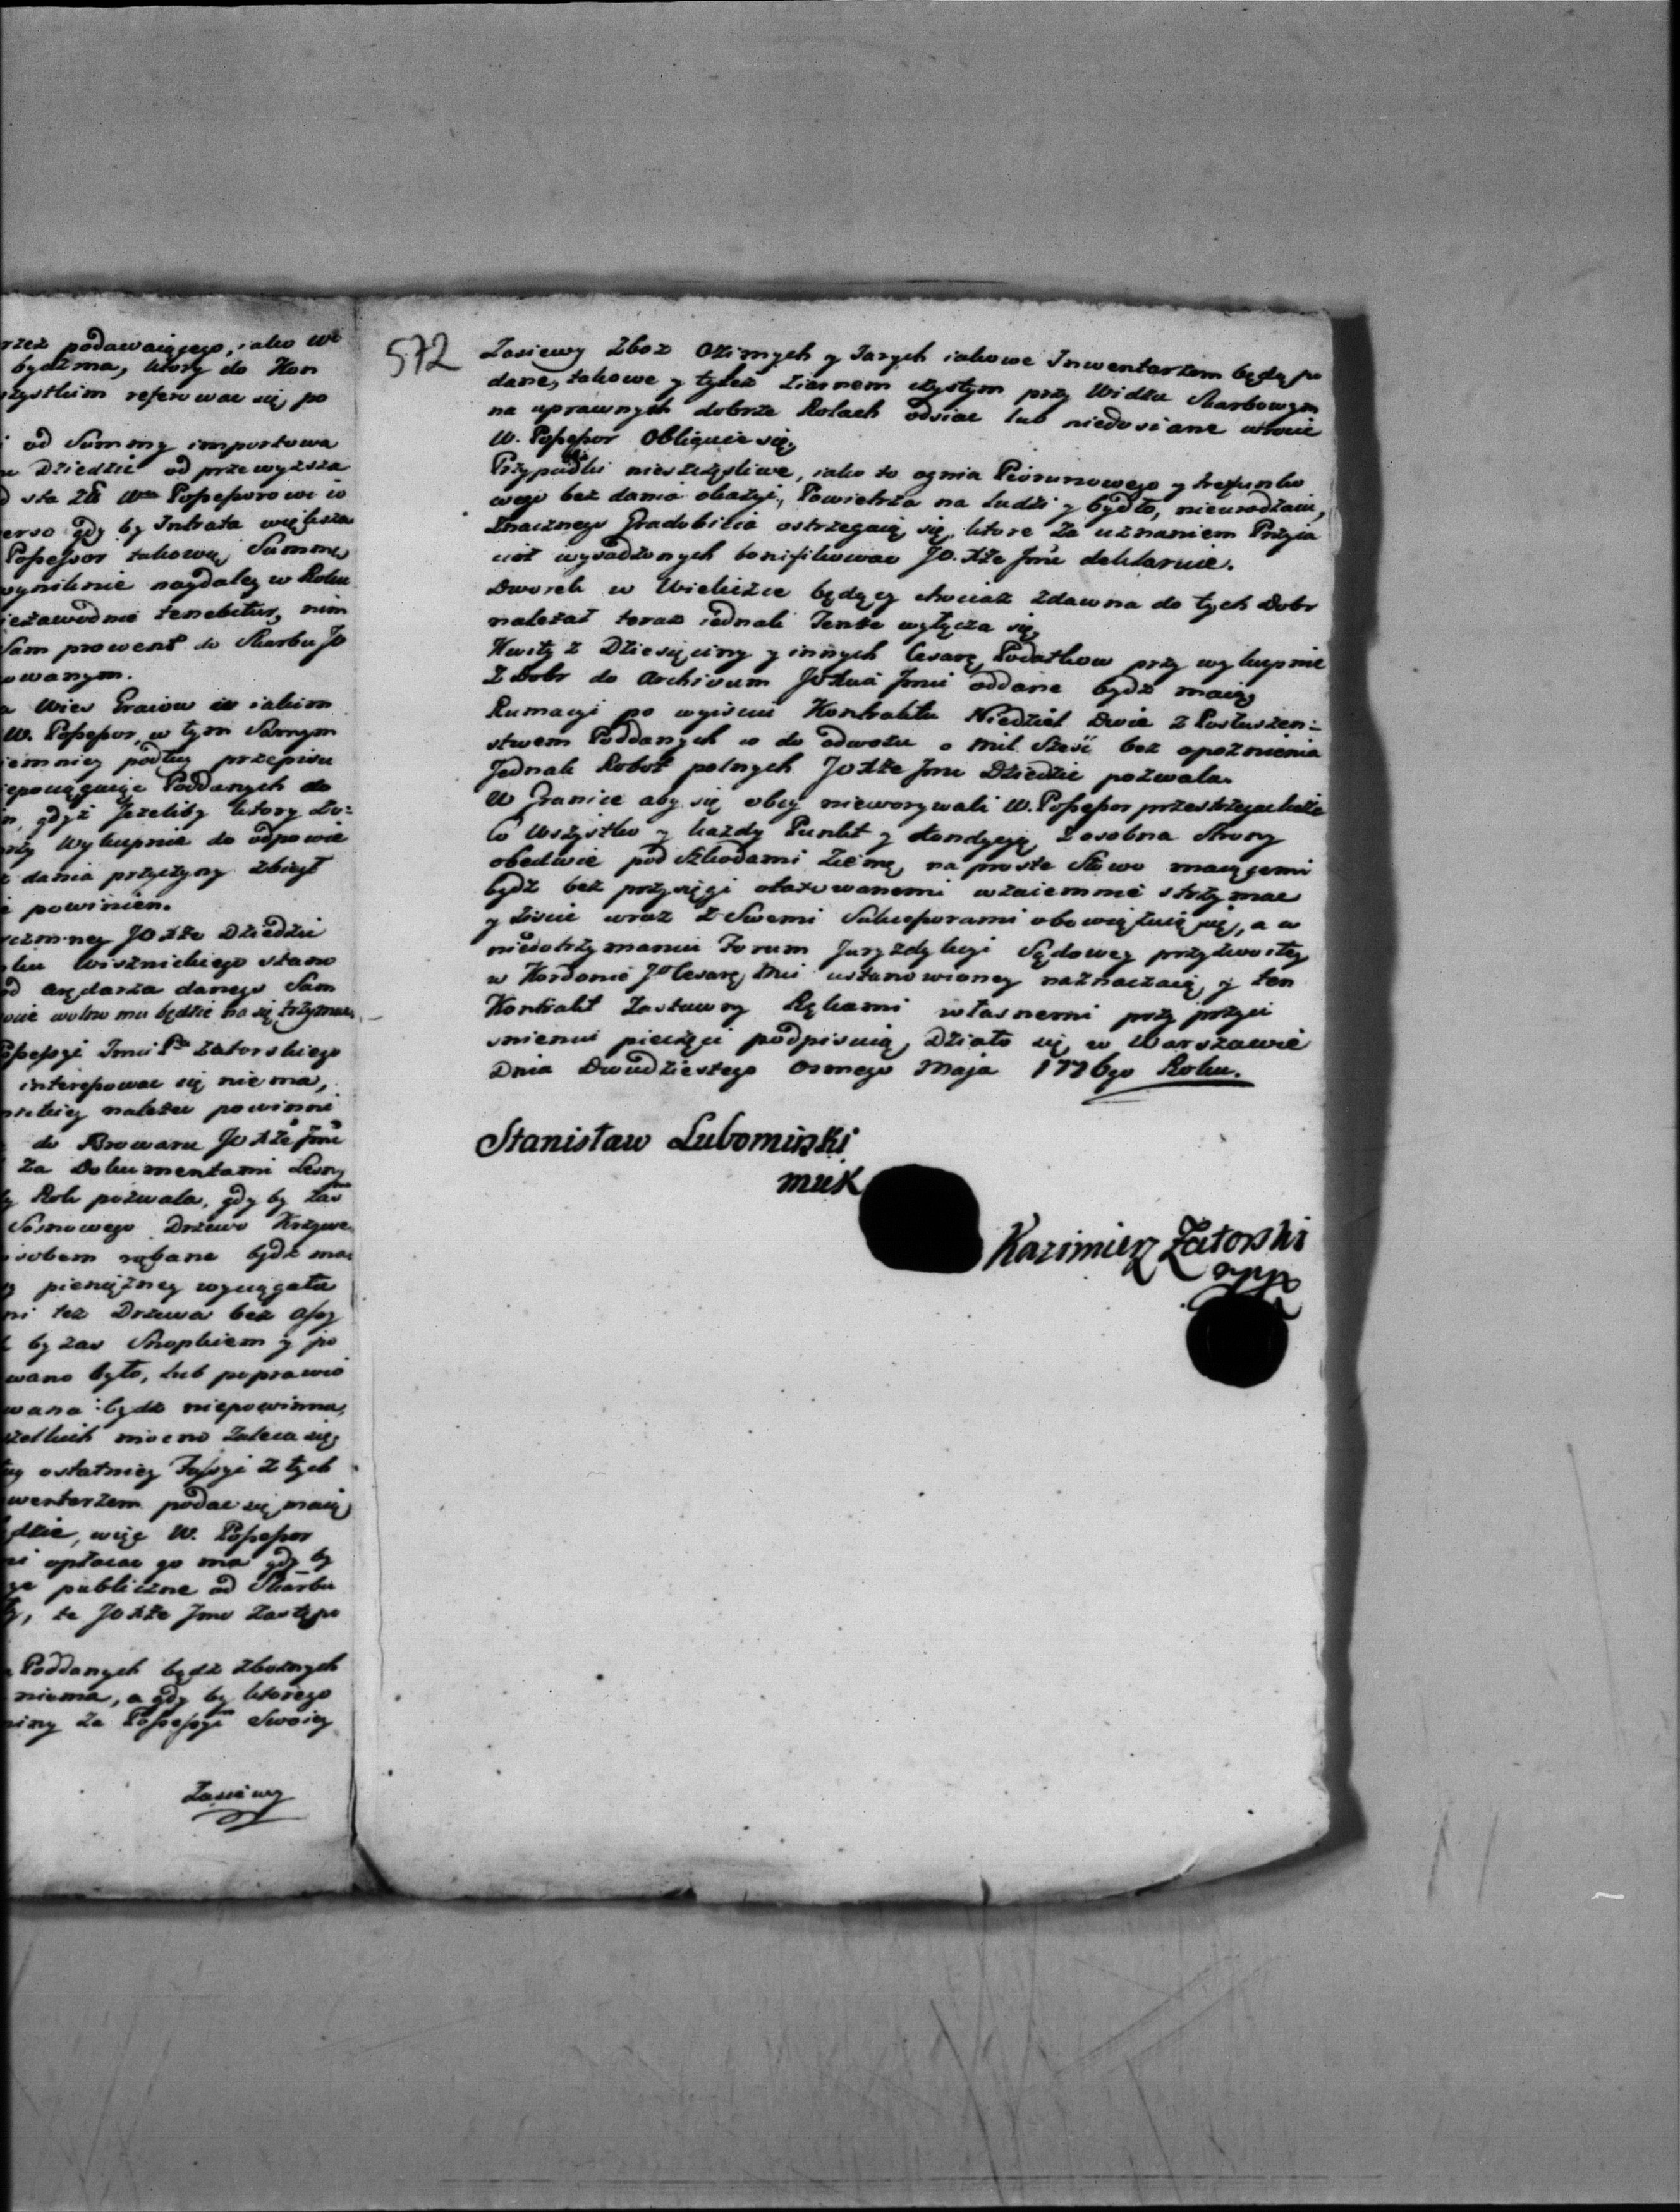 rzez podawaiącego, iako W
bydź ma, ktory do Kon
zystkim referować się po
od Summy importowa
Dziedzic od przewyzsza
sta Złł Wu Possessorowi w
erso gdy by Intrata większa
Possessor takową Summę
wyniknie naydaley w Roku
iezawodnie tenebitur, nim
Sam prowent do Skarbu JO
owanym.
Wies Graiow w iakim
W. Possessor, w tym Samym
iemniey podług przepisu
iepociągaiąc Poddanych do
gdyż Jeżeliby ktory Zo:
rzy Wykupnie do odpowie
dania przyczyny zbiegł
powinien.
rzmney JOXże Dziedzic
ku Wisznickiego stano
od Arędarza danego Sam
wolno mu będzie na się trzymać
ossessyi Jmci Pa Zatorskiego
interessować się niema,
należeć powinni
do Browaru JOXże Jmć
Za Dokumentami Lesny
Rok pozwala, gdy by zaś
Sosnowego Drzewo Krzywe
sobem rąbane bydź ma
pieniężney wyciągała
ni też Drzewa bez Assy
by zaś Snopkiem y po
wano było, lub poprawio
wana bydź niepowinna,
zelkich mocno Zaleca się
ostatniey Fassyi z tych
wentarzem podać się maią
dzie, więc W. Possessor
opłacać go ma gdy by
publiczne od Skarbu
że JOXże Jmć Zastępo
Poddanych bądź zbożnych
niema, a gdy by ktorego
winy Za Possessyi Swoiey
Zasiewy
572
Zasiewy Zboz Ozimych y Jarych iakowe Inwentarzem będą po
dane, takowe y tyleż Ziarnem czystym przy Widzu Skarbowym
na uprawnych dobrze Rolach odsiać lub niedosiane wrocić
W. Possessor Obliguie się,
Przypadki nieszczęśliwe, iako to ognia Piorunowego y trefunko
wego bez dania okazyi, Powietrza na Ludzi y bydło, nieurodzaiu,
Znacznego Gradobicia ostrzegaią się, ktore Za uznaniem Przyia
cioł wysadzonych bonifikować JO. Xże Jmć deklaruie.
Dworek w Wieliczce będący chociaż zdawna do tych Dobr
należał teraz iednak Tenże wyłącza się,
Kwity z Dziesięciny y innych Cesarę, Podatkow przy wykupnie
Z Dobr do Archivum JOXcia Jmci oddane bydź maią,
Rumacyi po wyisciu Kontraktu Niedziel Dwie z Posłuszeń:
stwem Poddanych co do odwozu o Mil Sześć bez opoźnienia
Jednak Robot polnych JOXże Jmć Dziedzic pozwala.
W Granice aby się obcy nieworywali W. Possessor przestrzegać każe
Co Wszystko y każdy Punkt y Kondycyą zosobna Strony
obedwie pod Szkodami Ziemę, na proste Słowo maiącemi
bydź bez przysięgi otaxowanemi wzaiemnie strzymać
y ziscić wraz z Swemi Sukcessorami obowiązuią się, a w
niedotrzymaniu Forum Juryzdykcyi Sądowey przyzwoitey
w Kordonie JO Cesarę, Mci ustanowioney naznaczaią, y ten
Kontrakt Zastawny Rękami własnemi przy przyci
snieniu pieczęci podpisuią, Działo się w Warszawie
Dnia Dwudziestego Osmego Maja 1776go Roku.
Stanisław Lubomirski
mWK
Kazimierz Zatorski
mpp